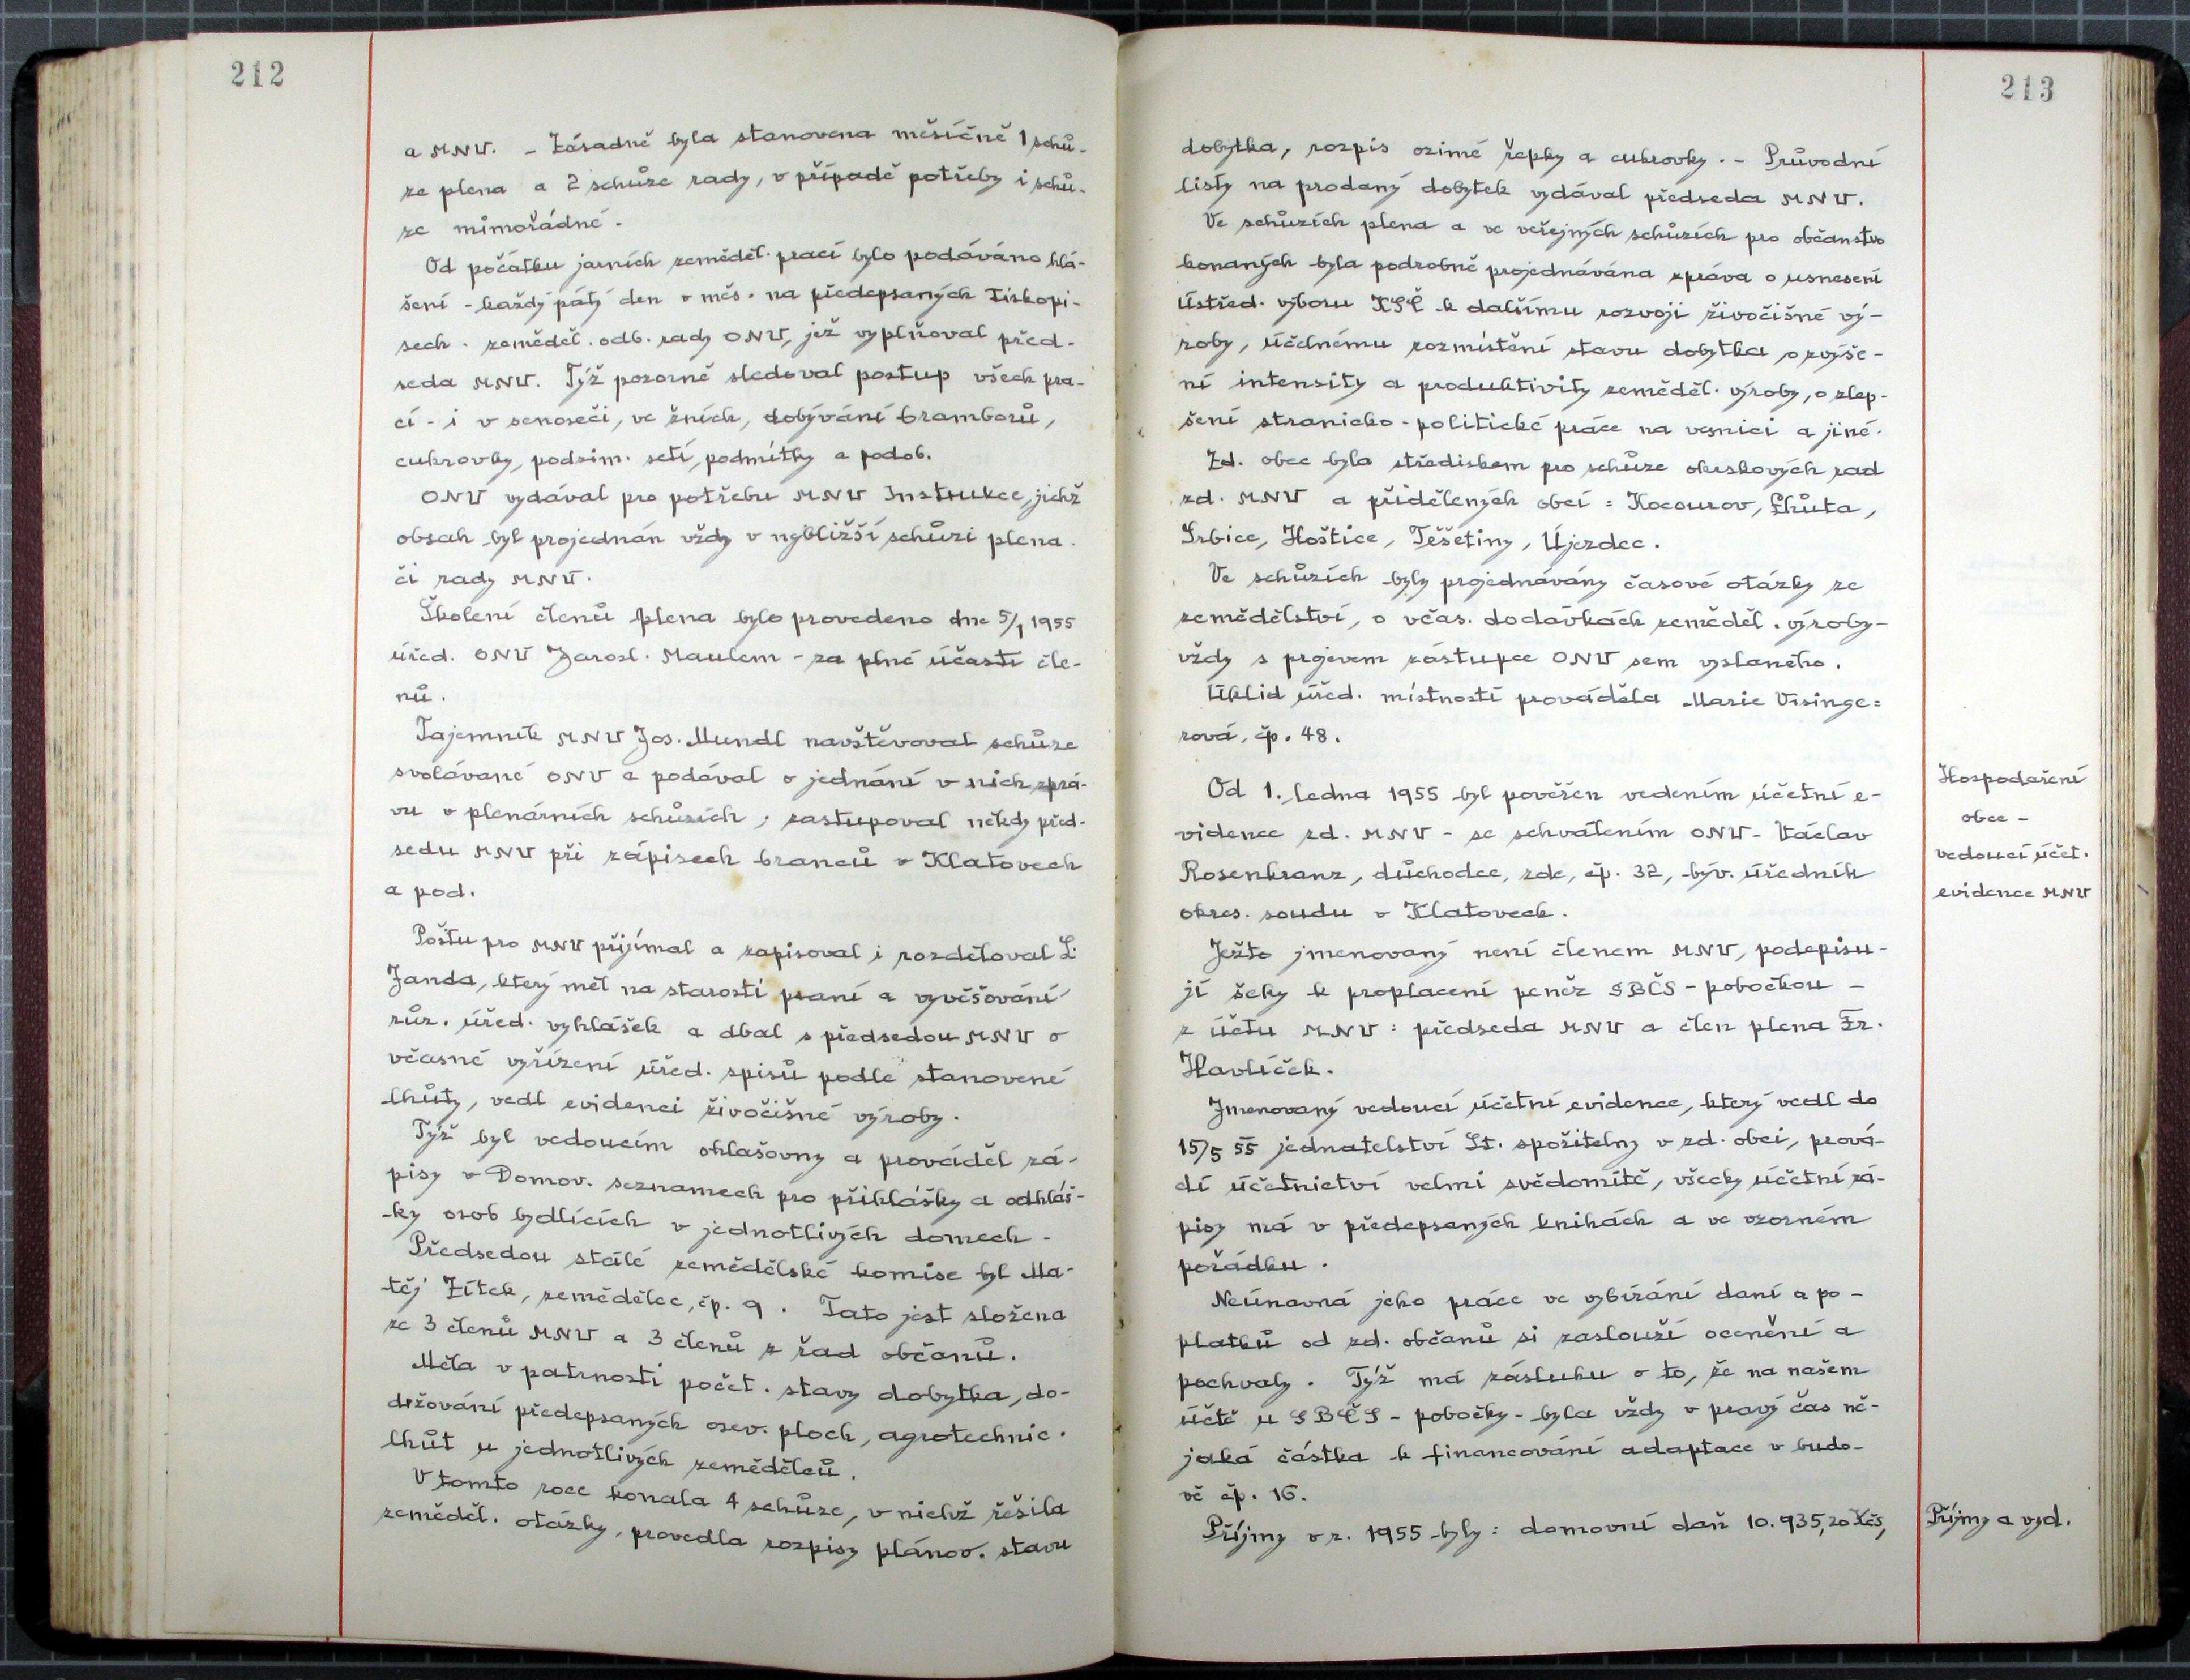 212
a MNV. - Zásadně byla stanovena měsíčně 1 schů-
ze plena a 2 schůze rady, v případě potřeby i schů-
ze mimořádné.
Od počátku jarních zeměděl. prací bylo podáváno hlá-
šení - každý pátý den v měs. na předepsaných tiskopi-
sech. zeměděl. odb. rady ONV, jež vyplňoval před-
seda MNV. Týž pozorně sledoval postup všech pra-
cí - i v senoseči, ve žních, dobývání bramborů,
cukrovky, podzim. setí, podmítky a podob.
ONV vydával pro potřebu MNV Instrukce, jichž
obsah byl projednán vždy v nejbližší schůzi plena
či rady MNV.
Školení členů plena bylo provedeno dne 5/1 1955
úřed. ONV Jarosl. Maulem - za plné účasti čle-
nů.
Tajemník MNV Jos. Mundl navštěvoval schůze
svolávané ONV a podával o jednání v nich zprá-
vu v plenárních schůzích; zastupoval někdy před-
sedu MNV při zápisech branců v Klatovech
a pod.
Poštu pro MNV přijímal a zapisoval i rozděloval L.
Janda, který měl na starosti psaní a vyvěšování
růz. úřed. vyhlášek a dbal s předsedou MNV o
včasné vyřízení úřed. spisů podle stanovené
lhůty, vedl evidenci živočišné výroby.
Týž byl vedoucím ohlašovny a prováděl zá-
pisy v Domov. seznamech pro přihlášky a odhláš-
-ky osob bydlících v jednotlivých domech -
Předsedou stálé zemědělské komise byl Ma-
těj Zítek, zemědělec, čp. 9. Tato jest složena
ze 3 členů MNV a 3 členů z řad občanů.
Měla v patrnosti počet. stavy dobytka, do-
držování předepsaných osev. ploch, agrotechnic.
lhůt u jednotlivých zemědělců.
V tomto roce konala 4 schůze, v nichž řešila
zeměděl. otázky, provedla rozpisy plánov. stavu
213
dobytka, rozpis ozimé řepky a cukrovky. - Průvodní
listy na prodaný dobytek vydával předseda MNV.
Ve schůzích plena a ve veřejných schůzích pro občanstvo
konaných byla podrobně projednávána zpráva o usnesení
Ústřed. výboru KSČ k dalšímu rozvoji živočišné vý-
roby, účelnému rozmístění stavu dobytka, o zvýše-
ní intensity a produktivity zeměděl. výroby, o zlep-
šení stranicko-politické práce na vesnici a jiné.
Zd. obec byla střediskem pro schůze okrskových rad
zd. MNV a přidělených obcí: Kocourov, Lhůta,
Srbice, Hoštice, Těšětiny, Újezdec.
Ve schůzích byly projednávány časové otázky ze
zemědělství, o včas. dodávkách zeměděl. výroby -
vždy s projevem zástupce ONV sem vyslaného.
Úklid úřed. místností prováděla Marie Visinge=
rová, čp. 48.
Od 1. ledna 1955 byl pověřen vedením účetní e-
vidence zd. MNV - se schválením ONV - Václav
Rosenkranz, důchodce, zde, čp. 32, býv. úředník
okres. soudu v Klatovech.
Ježto jmenovaný není členem MNV, podepisu-
jí šeky k proplacení peněz SBČS - pobočkou -
z účtu MNV: předseda MNV a člen plena Fr.
Havlíček.
Jmenovaný vedoucí účetní evidence, který vedl do
15/5 55 jednatelství St. spořitelny v zd. obci, prová-
dí účetnictví velmi svědomitě, všecky účetní zá-
pisy má v předepsaných knihách a ve vzorném
pořádku.
Neúnavná jeho práce ve vybírání daní a po-
platků od zd. občanů si zaslouží ocenění a
pochvaly. Týž má zásluhu o to, že na našem
účtě u SBČS - pobočky - byla vždy v pravý čas ně-
jaká částka k financování adaptace v budo-
vě čp. 16.
Příjmy v r. 1955 byly: domovní daň 10.935,20 Kčs,
Hospodaření
obce -
vedoucí účet.
evidence MNV
Příjmy a vyd.